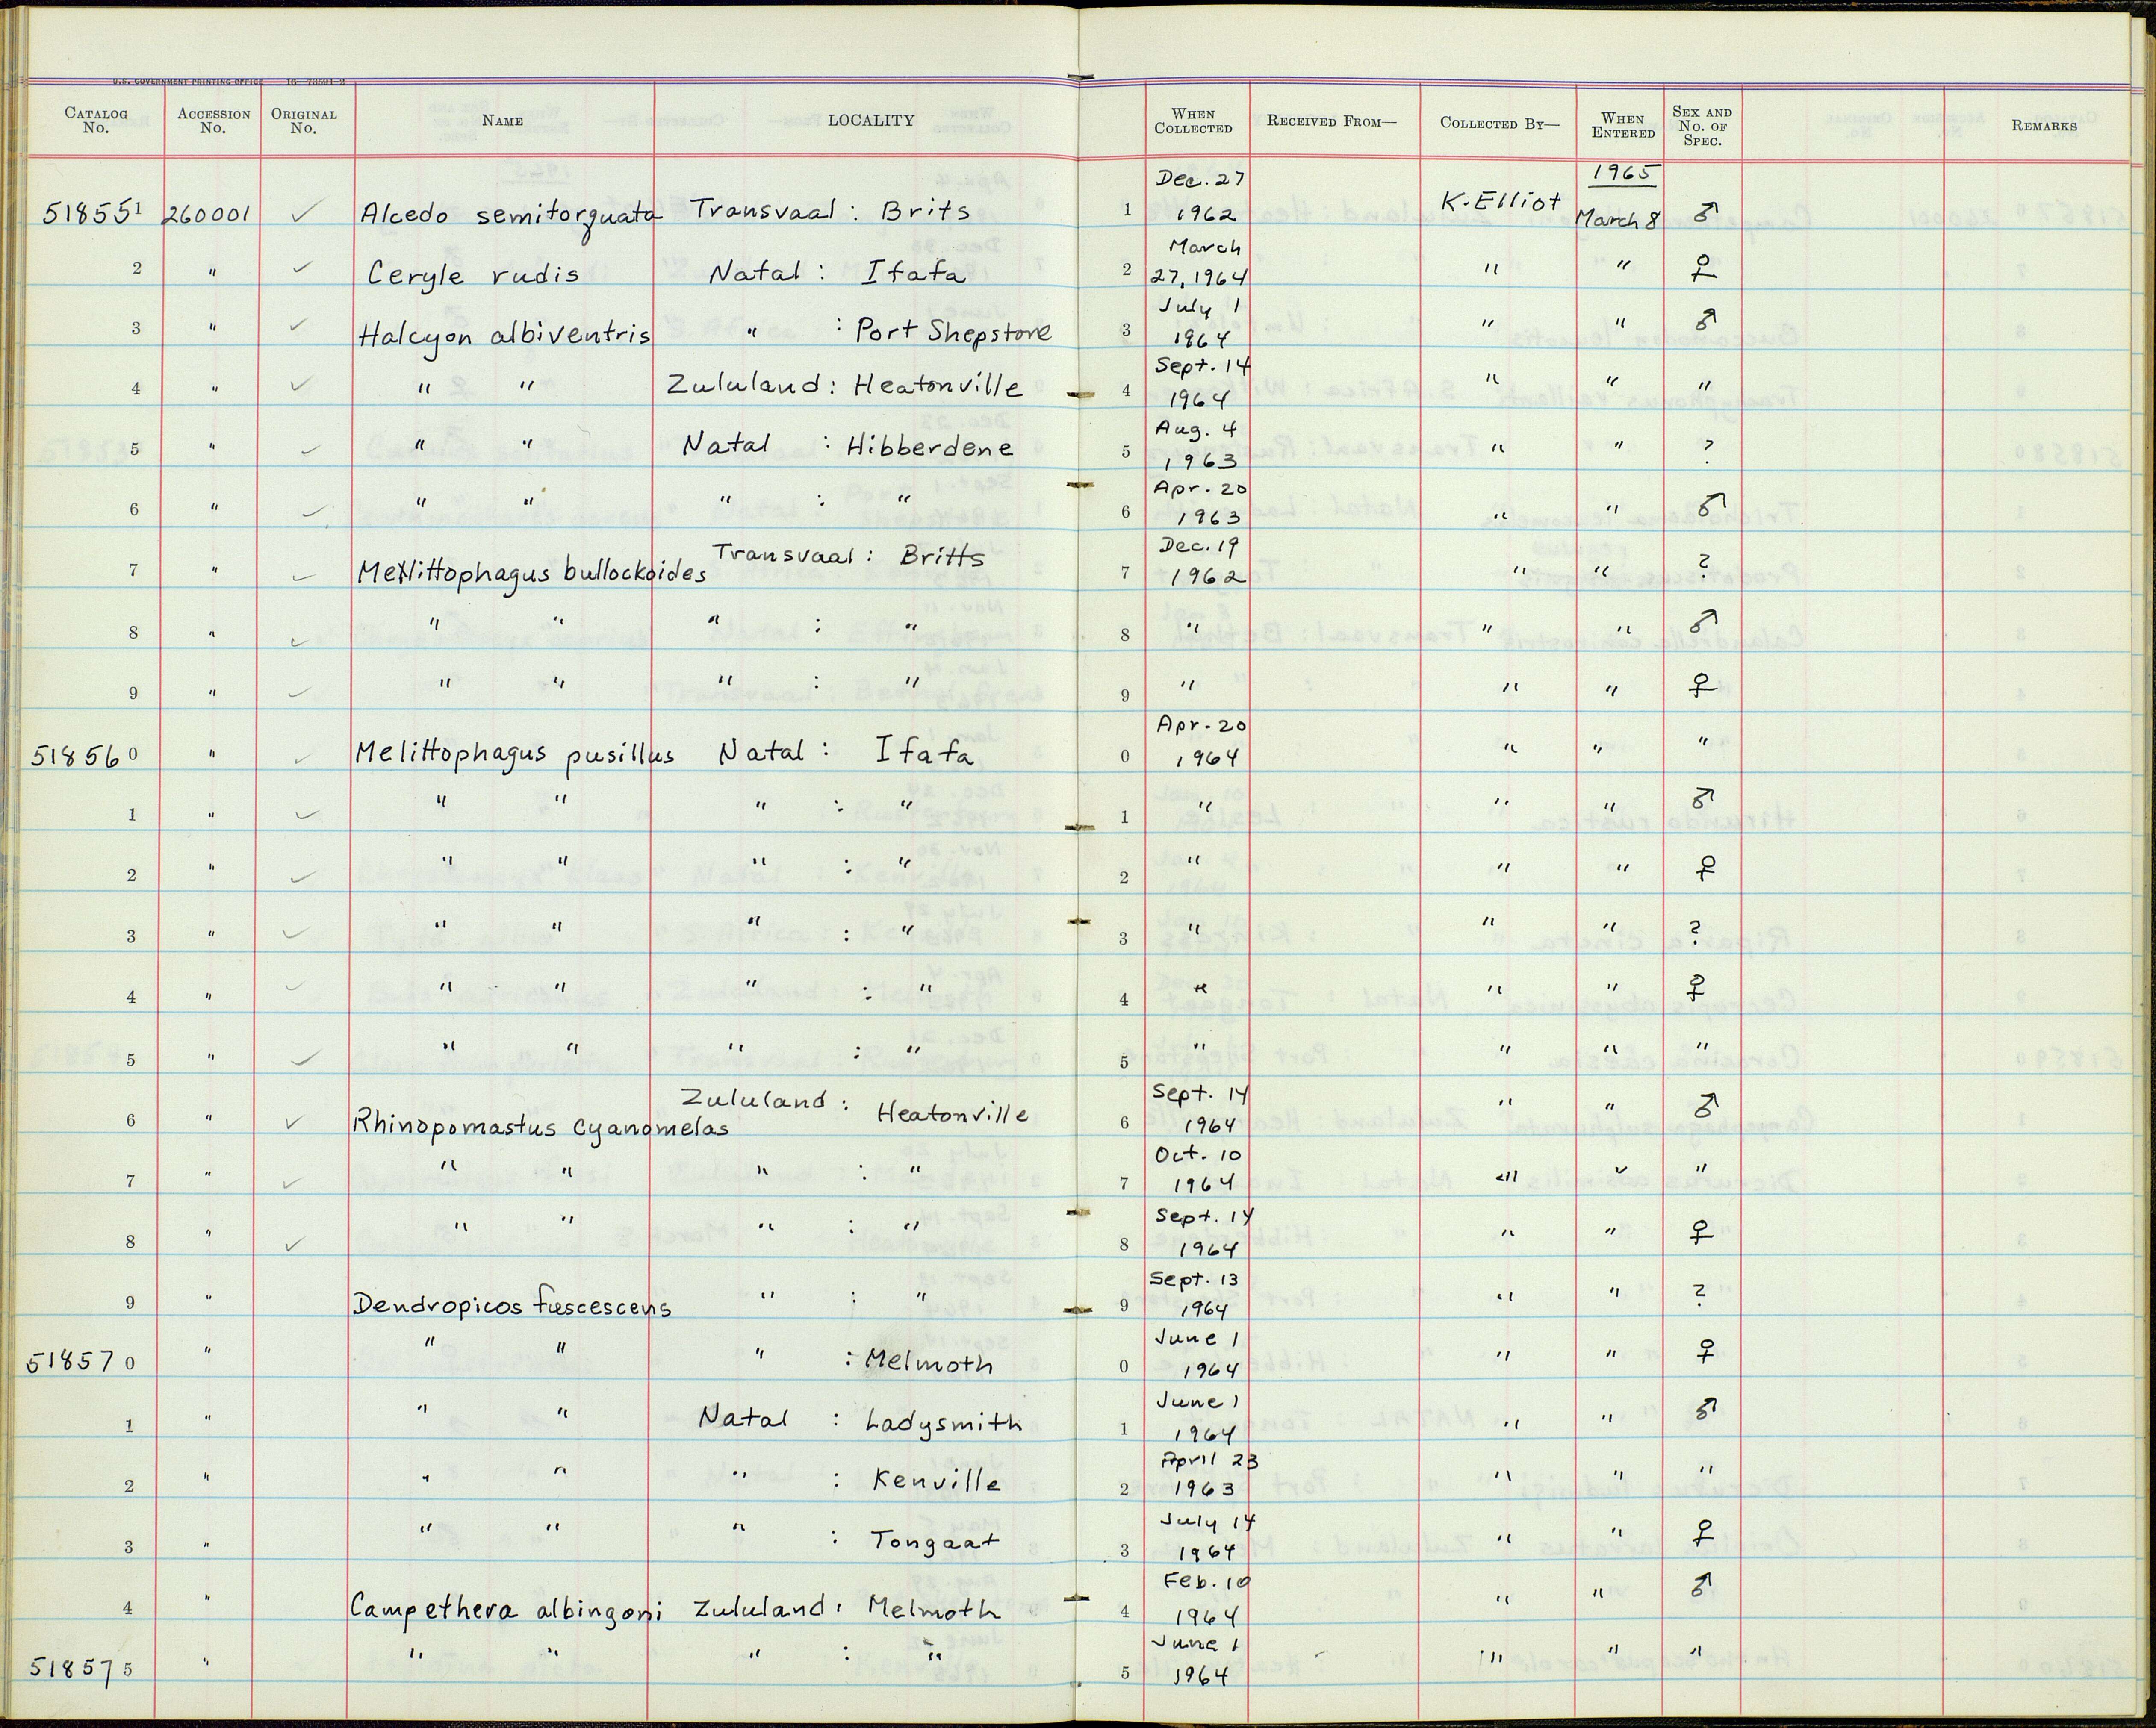 U.S. GOVERNMENT PRINTING OFFICE 16—73591-2
CATALOG No. ACCESSION No. ORIGINAL No. NAME LOCALITY WHEN COLLECTED RECEIVED FROM— COLLECTED BY— WHEN ENTERED SEX AND No. OF SPEC. REMARKS
518551 260001 ✓ Alcedo semitorquata Transvaal : Brits 1 Dec. 27 1962 K. Elliot 1965 March 8 ♂
2 " ✓ Ceryle rudis Natal : Ifafa 2 March 27, 1964 " " ♀
3 " ✓ Halcyon albiventris " : Port Shepstone 3 July 1 1964 " " ♂
4 " ✓ " " Zululand : Heatonville 4 Sept. 14 1964 " " "
5 " ✓ " " Natal : Hibberdene 5 Aug. 4 1963 " " ?
6 " ✓ " " " : " 6 Apr. 20 1963 " " ♂
7 " ✓ Melittophagus bullockoides Transvaal : Britts 7 Dec. 19 1962 " " ?
8 " ✓ " " " : " 8 " " " ♂
9 " ✓ " " " : " 9 " " " ♀
518560 " ✓ Melittophagus pusillus Natal : Ifafa 0 Apr. 20 1964 " " "
1 " ✓ " " " : " 1 " " " ♂
2 " ✓ " " " : " 2 " " " ♀
3 " ✓ " " " : " 3 " " " ?
4 " ✓ " " " : " 4 " " " ♀
5 " ✓ " " " : " 5 " " " "
6 " ✓ Rhinopomastus cyanomelas Zululand : Heatonville 6 Sept. 14 1964 " " ♂
7 " ✓ " " " : " 7 Oct. 10 1964 " " "
8 " ✓ " " " : " 8 Sept. 14 1964 " " ♀
9 " Dendropicos fuscescens " : " 9 Sept. 13 1964 " " ?
518570 " " " " : Melmoth 0 June 1 1964 " " ♀
1 " " " Natal : Ladysmith 1 June 1 1964 " " ♂
2 " " " " : Kenville 2 April 23 1963 " " "
3 " " " " : Tongaat 3 July 14 1964 " " ♀
4 " Campethera albingoni Zululand : Melmoth 4 Feb. 10 1964 " " ♂
518575 " " " " : " 5 June 1 1964 " " "